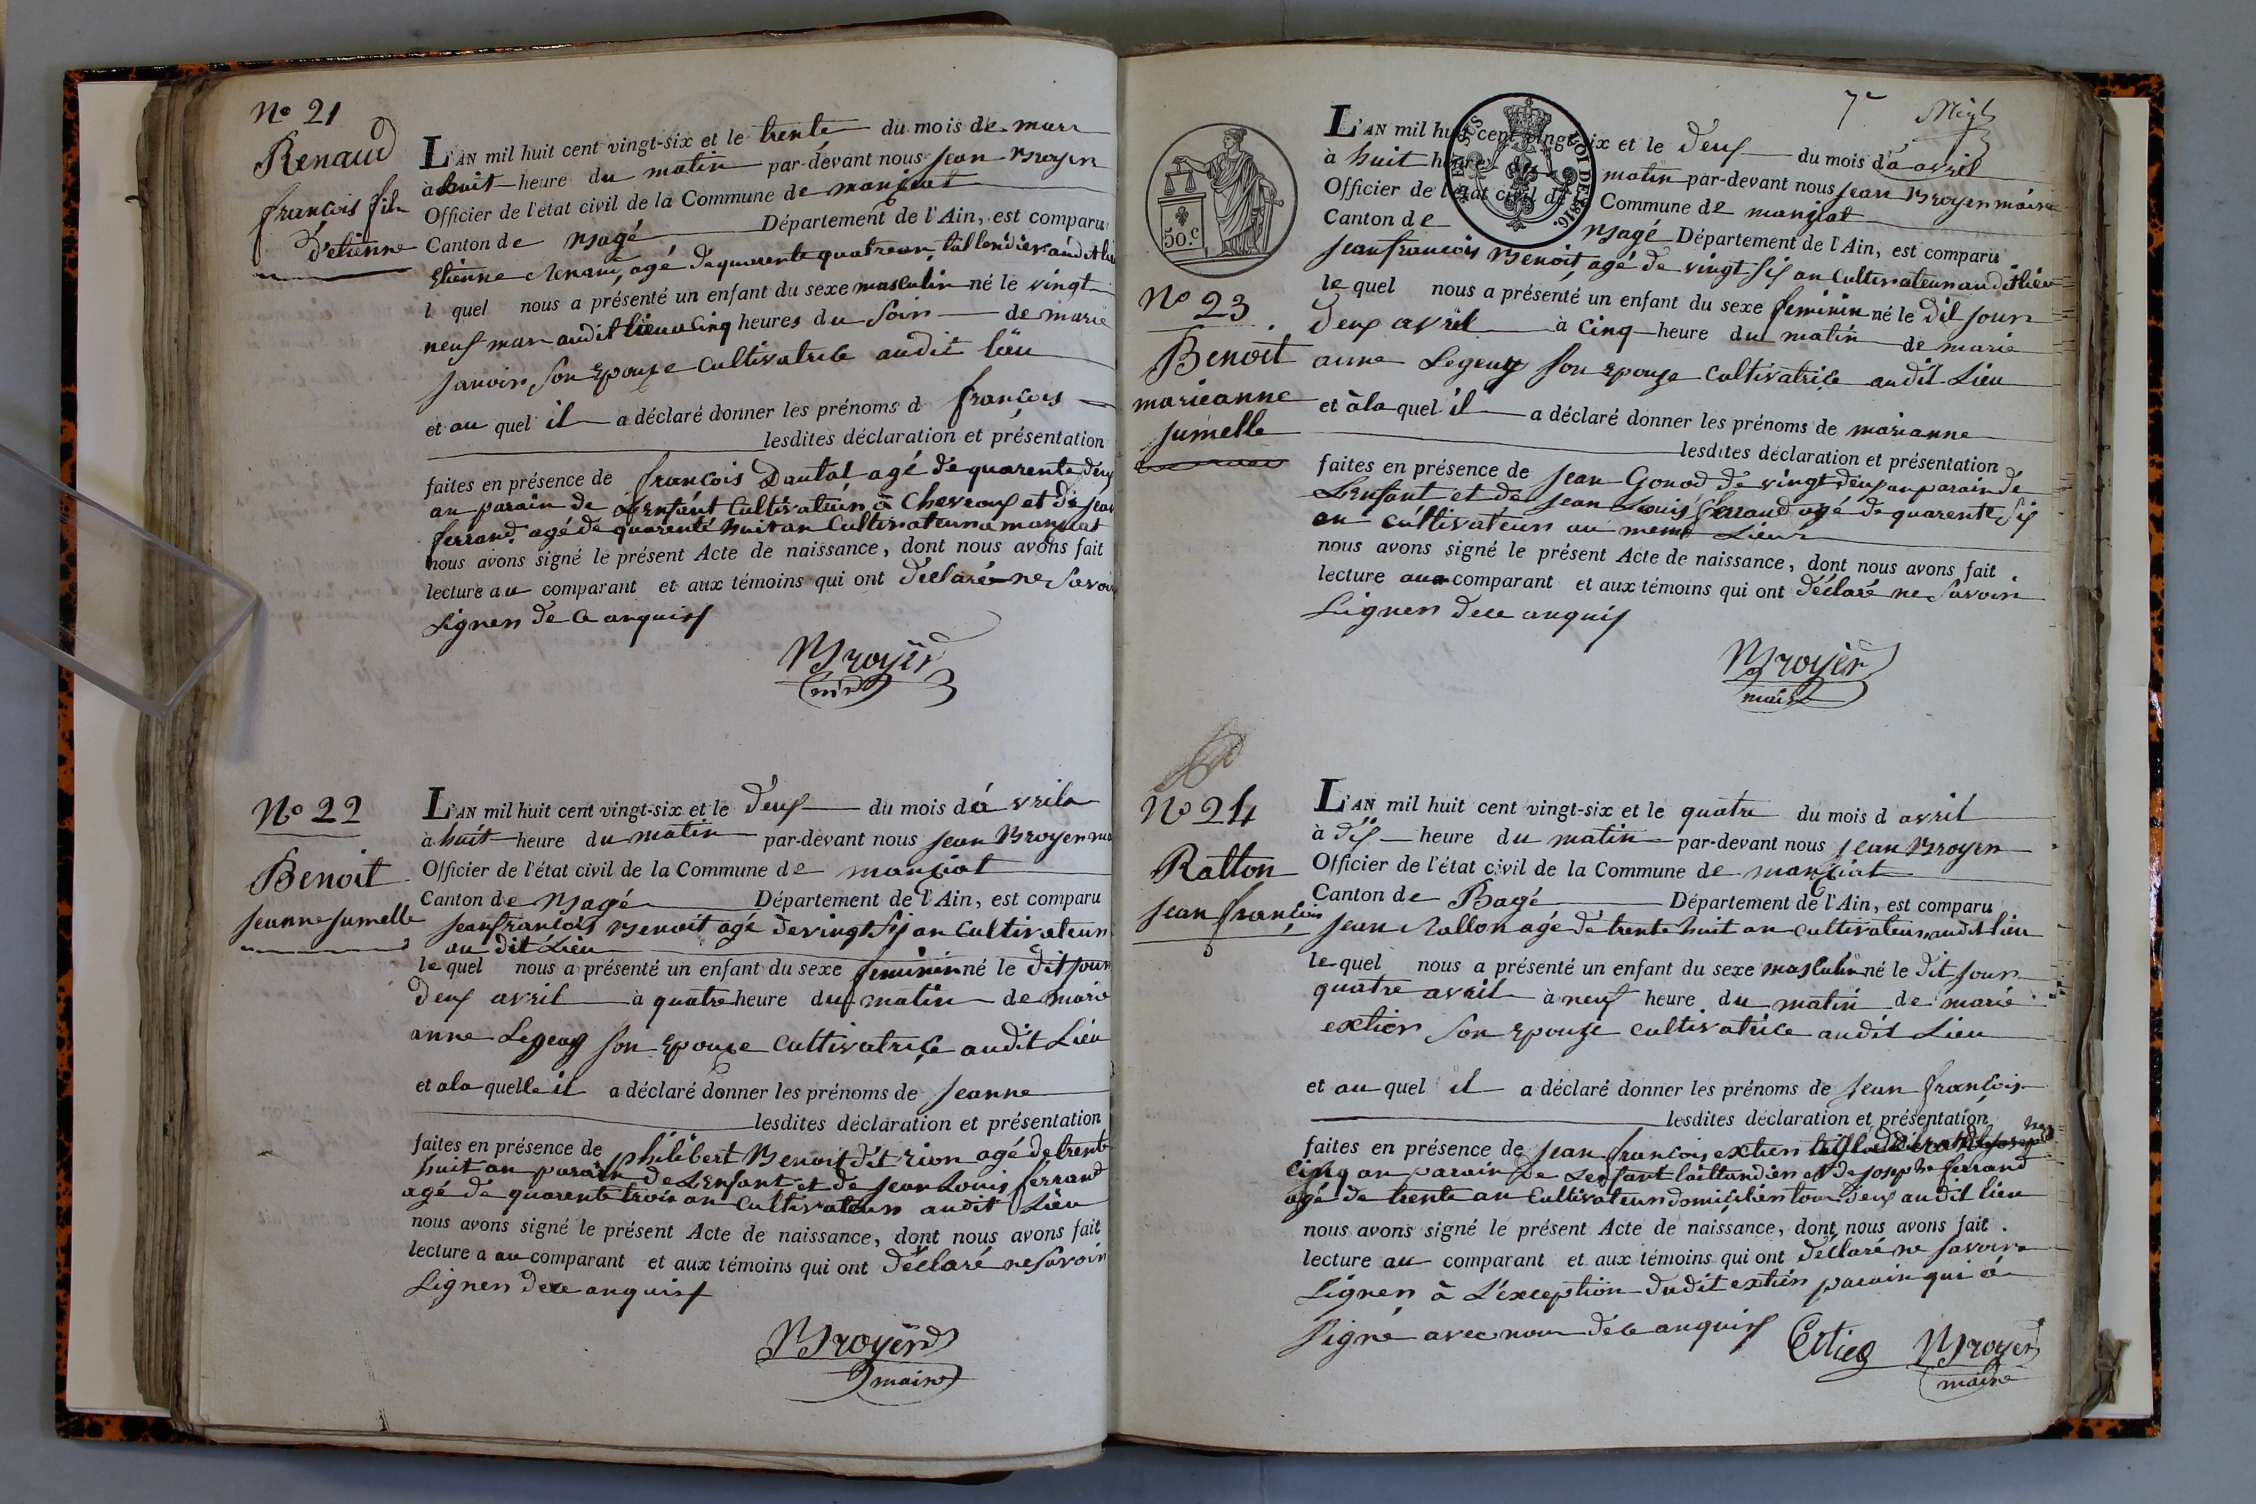 No 21
Renaud
françois fils
d'etienne
L'AN mil huit cent vingt-six et le trente du mois de mars
à huit heure du matin par-devant nous Jean Broyer
Officier de l'état civil de la Commune de manziat
Canton de Bagé Département de l'Ain, est comparu
Etienne Renaud, agé de quarente quatre an, taillendier audit lieu
l quel nous a présenté un enfant du sexe masculin né le vingt
neuf mars audit lieu a Cinq heures du Soir de marie
Janoir, son Epouze Cultivatrice audit lieu
et au quel il a déclaré donner les prénoms d françois
lesdites déclaration et présentation
faites en présence de françois Dantal agé de quarente deux
an parain de L'enfant Cultivateur, à Chevroux et de jean
ferrand agé de quarente huit an Cultivateur a manziat
nous avons signé le présent Acte de naissance, dont nous avons fait
lecture au comparant et aux témoins qui ont déclaré ne Savoir
Signer de ce anquis
Broyer
No 22
Benoit
jeanne jumelle
L'AN mil huit cent vingt-six et le deux du mois d'avril
à huit heure du matin par-devant nous jean Broyer
Officier de l'état civil de la Commune de manziat
Canton de Bagé Département de l'Ain, est comparu
jean françois Benoit agé de vingt six an Cultivateur
au dit Lieu
le quel nous a présenté un enfant du sexe feminin né le dit jour
deux avril à quatre heure du matin de marie
anne Legeuy son Epouze Cultivatrice audit Lieu
et a la quelle il a déclaré donner les prénoms de jeanne
lesdites déclaration et présentation
faites en présence de philibert Benoit dit rion agé de trente
huit an parain de L'Enfant et de jean Louis ferrand
agé de quarente trois an Cultivateur audit Lieu
nous avons signé le présent Acte de naissance, dont nous avons fait
lecture a au comparant et aux témoins qui ont déclaré ne Savoir
Signer de ce anquis
Broyer
maire
7e
LOI DE 1816.
50.c
No 23
Benoit
marieanne
jumelle
L'AN mil huit cent vingt-six et le deux du mois d'avril
à huit heure du matin par-devant nous jean Broyer maire
Officier de l'état civil de la Commune de manziat
Canton de Bagé Département de l'Ain, est comparu
jean francois Benoit, agé de vingt six an Cultivateur audit lieu
le quel nous a présenté un enfant du sexe feminin né le dit jour
deux avril à cinq heure du matin de marie
anne Legeuy son epouze cultivatrice audit Lieu
et à la quel il a déclaré donner les prénoms de marianne
lesdites déclaration et présentation
faites en présence de jean Gonod de vingt deux an parain de
L'enfant et de jean Louis ferrand agé de quarente six
an cultivateur au meme Lieu
nous avons signé le présent Acte de naissance, dont nous avons fait
lecture au comparant et aux témoins qui ont déclaré ne Savoir
Signer de ce anquis
Broyer
maire
No 24
Ratton
jean françois
L'AN mil huit cent vingt-six et le quatre du mois d avril
à dix heure du matin par-devant nous jean Broyer
Officier de l'état civil de la Commune de manziat
Canton de Bagé Département de l'Ain, est comparu
jean Ratton agé de trente huit an cultivateur audit lieu
le quel nous a présenté un enfant du sexe masculin né le dit jour
quatre avril à neuf heure du matin de marie
extier son epouze cultivatrice audit Lieu
et au quel il a déclaré donner les prénoms de jean françois
lesdites déclaration et présentation
faites en présence de jean francois extier
cinq an parain de L'enfant taillandier et de joseph ferrand
agé de trente an Cultivateur domicilier tous deux audit lieu
nous avons signé le présent Acte de naissance, dont nous avons fait
lecture au comparant et aux témoins qui ont déclaré ne savoir
Signer à L'exception dudit extier parain qui a
Signé avec nous de ce anquis
Broyer
maire